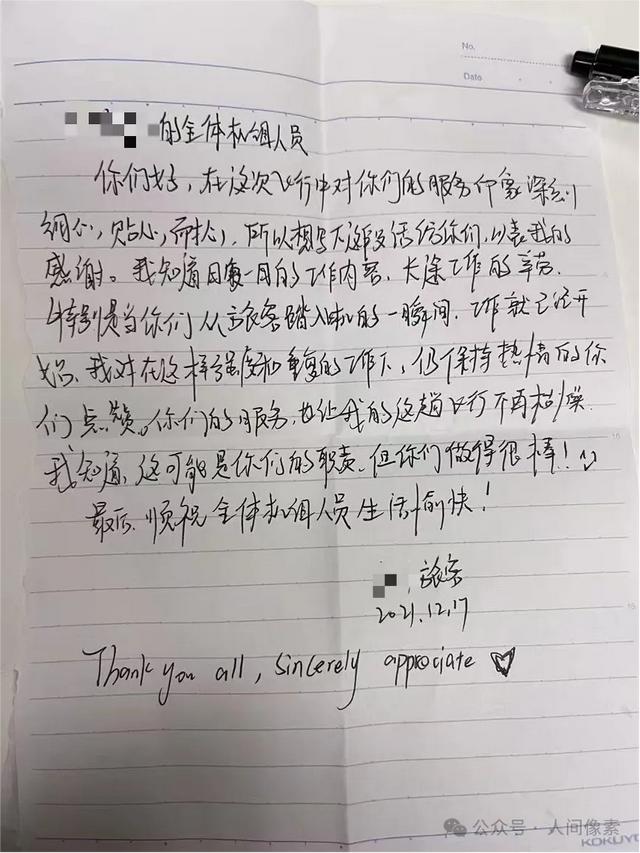 No.
Date
的全体机组人员
你们好,在这次飞行中对你们的服务印象深刻
细心,贴心,而耐心,所以想写下这段话给你们,以表我的
感谢。我知道日复一日的工作内容,长途工作的辛苦.
特别是当你们从旅客踏入机的一瞬间.工作就已经开
始。我对在这样强度和重复的工作下、仍保持热情的你
们点赞。你们的服务,也让我的这趟飞行不再枯燥.
我知道、这可能是你们的职责、但你们做得很棒!
最后、顺祝全体机组人员生活愉快!
旅客
2021.12.17
Thank you all, sincerely approciate
公众号·人间像素
KOKUYO